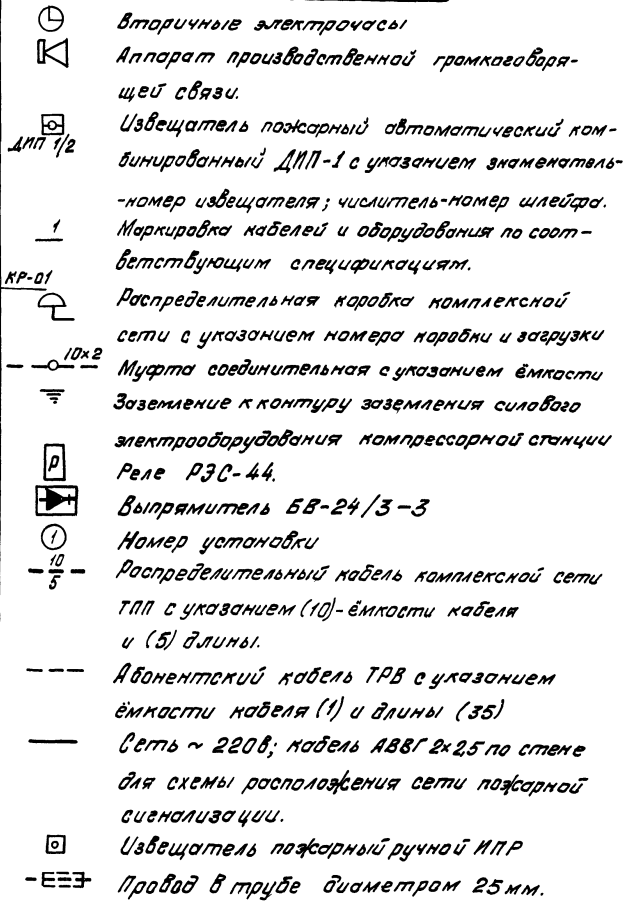 Вторичные электрочасы
Аппарат производственной громкоговоря-
щей связи.
Извещатель пожарный автоматический ком-
ДИП 1/2
бинированный ДИП-1 с указанием знаменатель-
-номер извещателя; числитель-номер шлейфа.
1 Маркировка кабелей и оборудования по соот-
ветствующим спецификациям.
КР-01
Распределительная коробка комплексной
сети с указанием номера коробки и загрузки
10×2
Муфта соединительная с указанием ёмкости
Заземление к контуру заземления силового
электрооборудования компрессорной станции
Р Реле РЭС-44.
Выпрямитель БВ-24/3-3
1 Номер установки
10
5 Распределительный кабель комплексной сети
ТПП с указанием (10)-ёмкости кабеля
и (5) длины.
Абонентский кабель ТРВ с указанием
ёмкости кабеля (1) и длины (35)
Сеть ~ 220в; кабель АВВГ 2×2,5 по стене
для схемы расположения сети пожарной
сигнализации.
Извещатель пожарный ручной ИПР
Провод в трубе диаметром 25 мм.